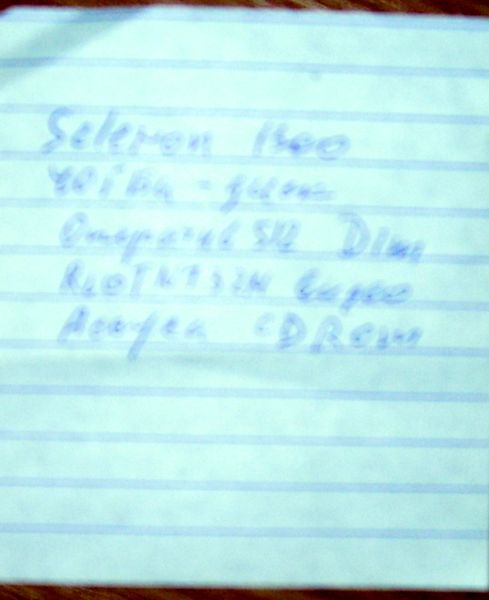 Seleron 1300
40 Гби - диск
Оператив 512 Dimm
TNT 32M видео
CD Rom